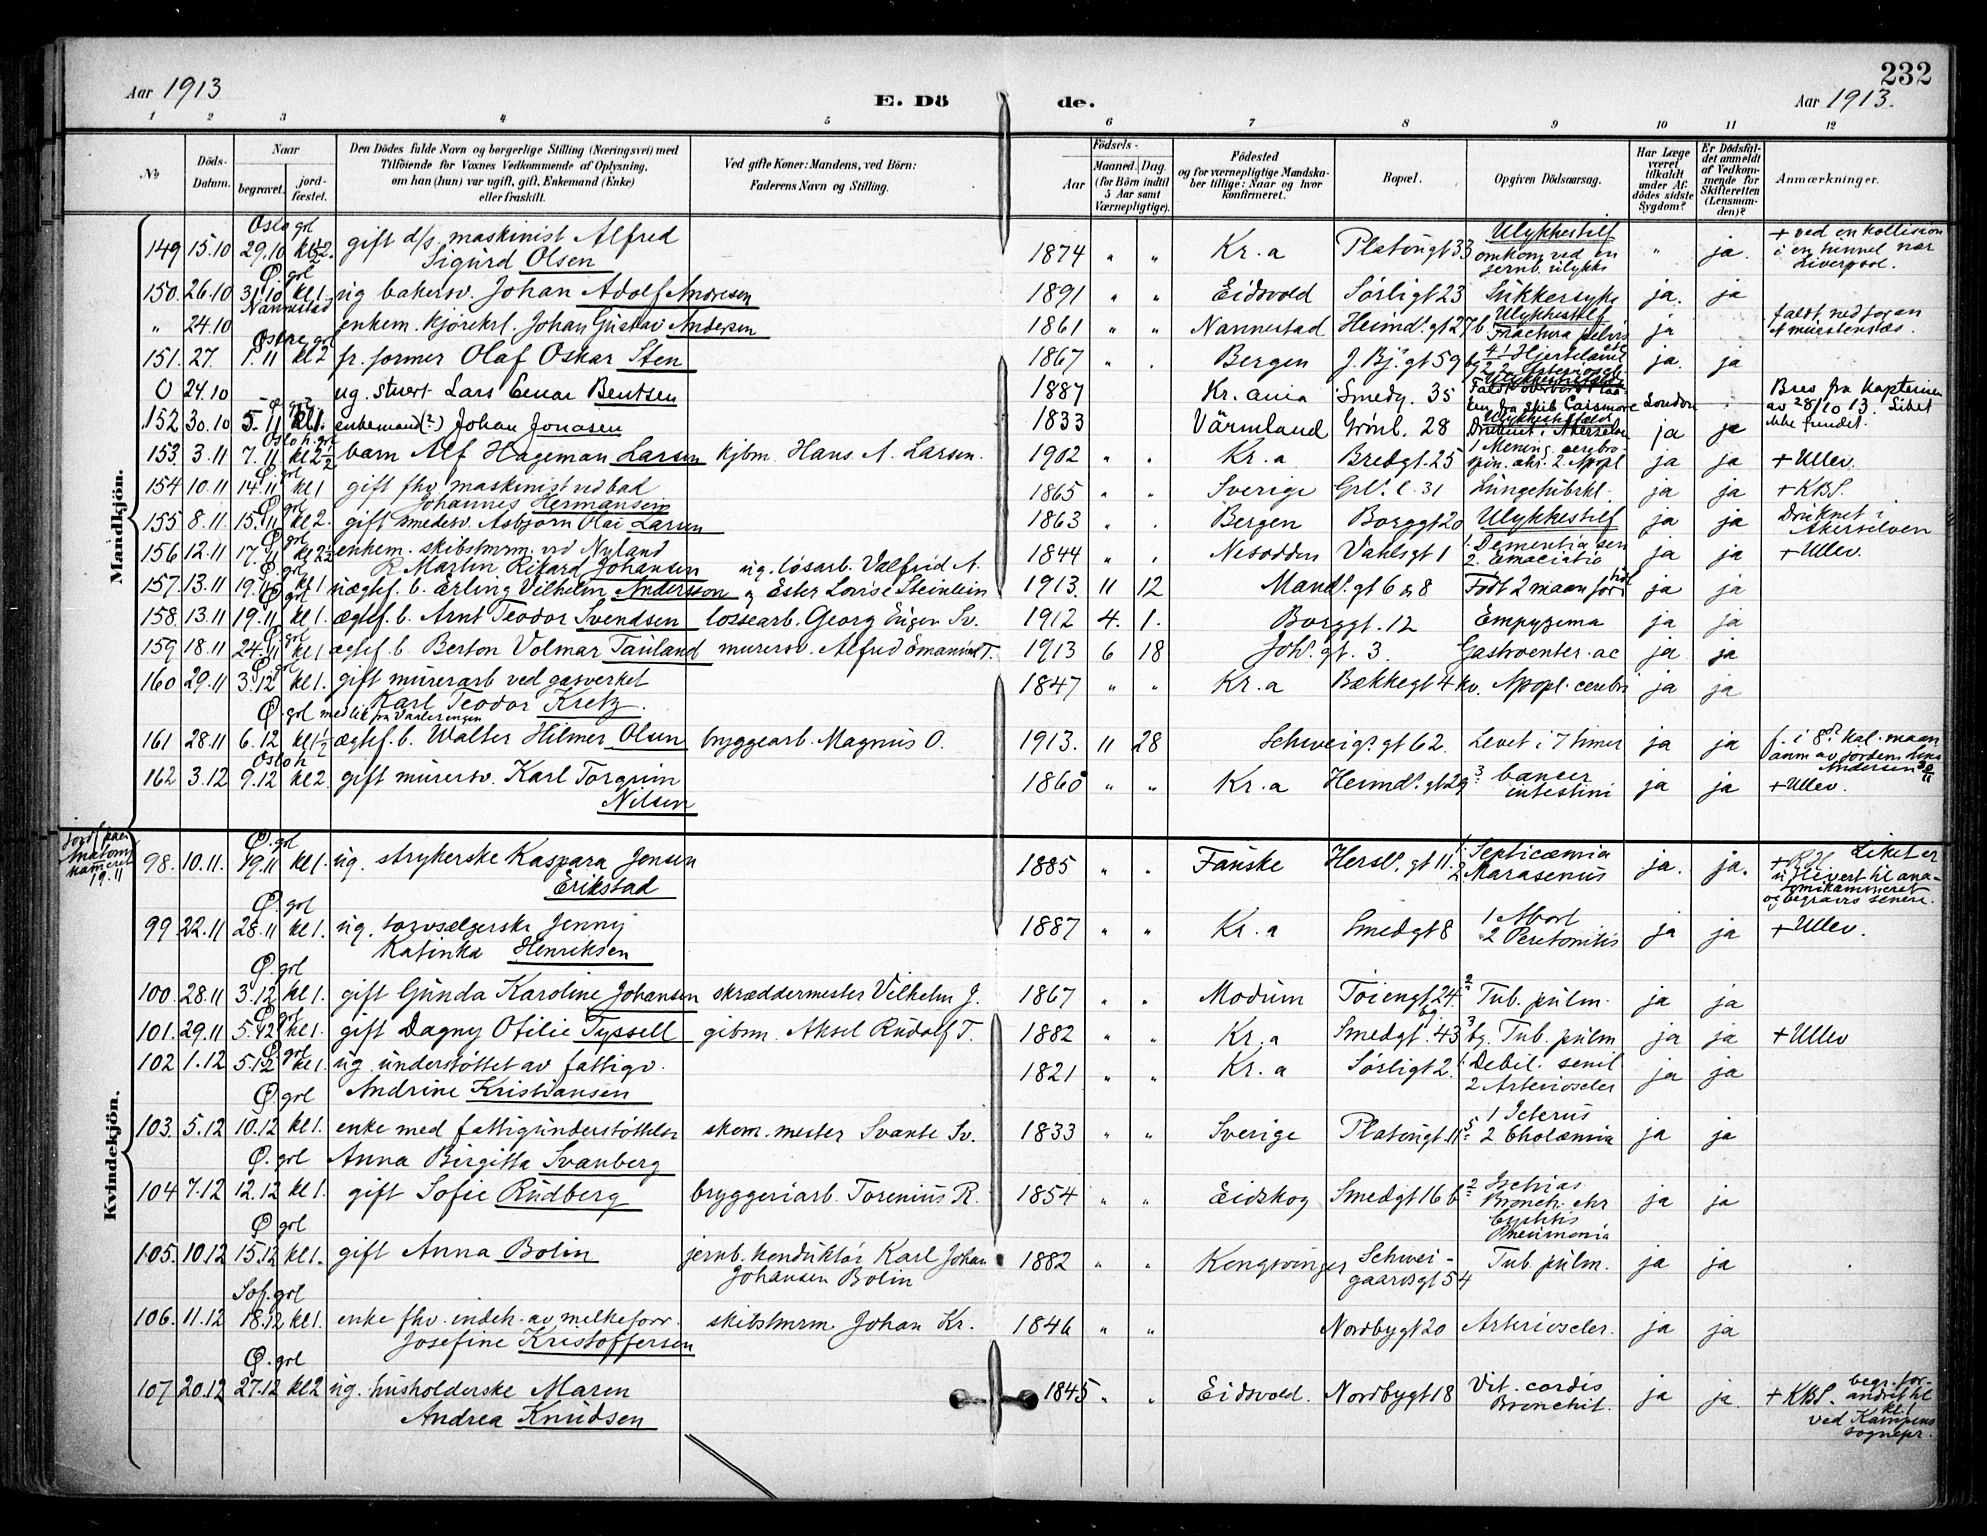 232
Aar 1913
E. Dö de.
Aar 1913.
1 2 3 4 5 6 7 8 9 10 11 12
No
Döds-Datum.
Naar
begravet.
jord-fæstet.
Den Dödes fulde Navn og borgerlige Stilling (Næringsvei) med
Tilföiende för Voxnes Vedkommende af Oplysning,
om han (hun) var ugift, gift, Enkemand (Enke)
eller fraskilt.
Ved gifte Koner: Mandens, ved Börn:
Faderens Navn og Stilling.
Födsels-
Aar
Maaned.
Dag.
(for Börn indtil
5 Aar samt
Værnepligtige).
Födested
og for værnepligtige Mandska-
ber tillige: Naar og hvor
konfirmeret.
Bopæl.
Opgiven Dödsaarsag.
Har Læge
været
tilkaldt
under Af-
dödes sidste
Sygdom?
Er Dödsfal-
det anmeldt
af Vedkom-
mende for
Skifteretten
(Lensman-
den)?
Anmærkninger.
Mandkjön.
Oslo gvl
149 15.10 29.10 kl 2½ gift d/s maskinist Alfred Sigurd Olsen 1874 " " Kr.a Platousgt 33 Ulykkestilf omkom ved en jernb. ulykke " ja. + ved en kollission i en tunnel nær Liverpool.
Ø gvl
150. 26.10 31.10 kl 1. ug bakersv. Johan Adolf Andresen 1891 " " Eidsvold Sørligt 23 Sukkersyke ja. ja
Nannestad
" 24.10 enkem. kjørekrl. Johan Gustav Andersen 1861 " " Nannestad Heimdl. gt 27b. Ulykkestilf Fractura pelvis ja faldt ned for en murstenslæs.
Østre gvl
151. 27. 1.11 kl 2 fr. former Olaf Oskar Sten 1867 " Bergen J. Bj. gt 59 ja. ja
0 24.10 ug. stuert Lars Einar Bentsen 1887 Kr. ania Smedg. 35 fra skib Cairsmore London Brev fra kapteinen av 28/10 13. Liket ikke fundet.
Ø gvl
152 30.10 5.11 kl 1. enkemand (?) Johan Jonasen 1833 Värmland Grönl. 28 Druknet i Akerselv ja ja
Oslo h. gvl
153. 3.11 7.11 kl 2½ barn Alf Hageman Larsen kjbm. Hans A. Larsen. 1902 " . Kr.a Bredgt. 25 1 Mening. cerebro-spin. 2. Apopl ja ja + Ullev.
Ø gvl
154 10.11 14.11 kl 1 gift fhv maskinist ved bad Johannes Hermansen 1865 " . Sverige Grl. l. 31 Lungetubrkl. ja ja + KBS.
Ø gvl
155 8.11. 15.11 kl 2. gift smedesv. Asbjørn Olai Larsen 1863 " . Bergen Borggt 20 Ulykkestilf ja ja Druknet i Akerselven
Ø gvl
156 12.11 17.11 kl 2½ enkem. skibstmrm. ved Nyland P. Martin Rikard Johansen 1844 " . Nesodden Vahlsgt 1 1. Dementia sen 2. Emaciatio ja ja + Ullev.
Ø. gvl
157. 13.11 19.11 kl 1 uægtef. b. Erling Vilhelm Andersson ug. løsarb. Valfrid A. og Ester Lovise Steinlein 1913. 11 12 Mandl. gt 6 Født 2 maan for tidl ja ja
Ø gvl
158. 13.11 19.11 kl 1. ægtef. b. Arnt Teodor Svendsen lossearb. Georg Eugen Sv. 1912 4. 1. Borggt. 12 Empyema ja ja
Ø. gvl
159 18.11 24.11 kl 1 ægtef. b Berton Volmar Tauland murersv. Alfred Emanuel T. 1913 6 18 Johs. gt. 3 Gastroenter. ac ja ja
Ø. gvl
160 29.11 3.12 kl 1. gift murerarb ved gasverket Karl Teodor Kretz. 1847 " " Kr.a Bækkegt 4 Apopl. cerebri ja ja
Ø gvl med lik fra Vaalerengen
161 28.11 6.12 kl 1½ ægtef. b. Walter Hilmer Olsen bryggearb. Magnus O. 1913. 11 28 Schweigs. gt 62. Levet i 7 timer ja ja f. i 8de kal. maan anm av jordem. Andersen 30/11
Oslo h
162 3.12 9.12 kl 2. gift murersv. Karl Torgrim Nilsen 1860 " " Kr.a Heimdl. gt 29 3: Cancer intestini ja ja + Ullev.
Kvindekjön.
19.11
Ø. gvl
98. 10.11. 19.11 kl 1. ug. strykerske Kaspara Jensen Erikstad 1885 " . Fauske Hersl. gt 11. 1. Septicæmia 2. Marasmus ja. ja. + RH. Liket er utlevert til ana-tomikammeret og begraves senere.
Ø. gvl
99 22.11 28.11 kl 1. ug. torvsælgerske Jenny Katinka Henriksen 1887 " " Kr.a Smedgt 8 1 Abort 2 Peretonitis ja ja + Ullev.
Ø gvl
100. 28.11 3.12 kl 1. gift Gunda Karoline Johansen skræddermester Vilhelm J. 1867 " . Modum Tøiengt 24. Tub. pulm. ja ja
Ø gvl
101. 29.11 5.12 kl 1. gift Dagny Otilie Tyssell gibsm. Aksel Rudolf T. 1882 " " Kr.a Smedgt. 43 bg. Tub. pulm. ja ja + Ullev
Ø gvl
102 1.12 5.12 kl 1. ug. understøttet av fattigv. Andrine Kristiansen 1821 " " Kr.a Sørligt 2. 1. Debil. senil 2 Arterioscler ja ja
Ø gvl
103. 5.12 10.12 kl 1. enke med fattigunderstøttelse Anna Birgitta Svanberg skom. mester Svante Sv. 1833 " " Sverige Platousgt. 11 1 Icterus 2 Cholæmia ja ja
Ø. gvl
104 7.12 12.12 kl 1 gift Sofie Rudberg bryggeriarb. Torenius R. 1854 " " Eidskog Smedgt 16 b Ischias Bronch. chr Cystitis Pneumonia ja ja
Ø gvl
105. 10.12 15.12 kl 1. gift Anna Bolin jernb. konduktør Karl Johan Johansen Bolin 1882 " " Kongsvinger Schwei-gaardsgt 54 Tub. pulm. ja ja
Sof. gvl
106. 11.12 18.12 kl 1. enke fhv. indeh. av melkeforr. Josefine Kristoffersen skibstmrm. Johan Kr. 1846 " " Nordbygt 20 Arterioscler. ja ja
Ø. gvl
107 20.12 27.12 kl 2 ug. husholderske Maren Andrea Knudsen 1845 " . Eidsvold. Nordbygt 18 Vit. cordis Bronchit. ja ja. + KBS. begr. for-andret til kl 1 ved Kampens sognepr.